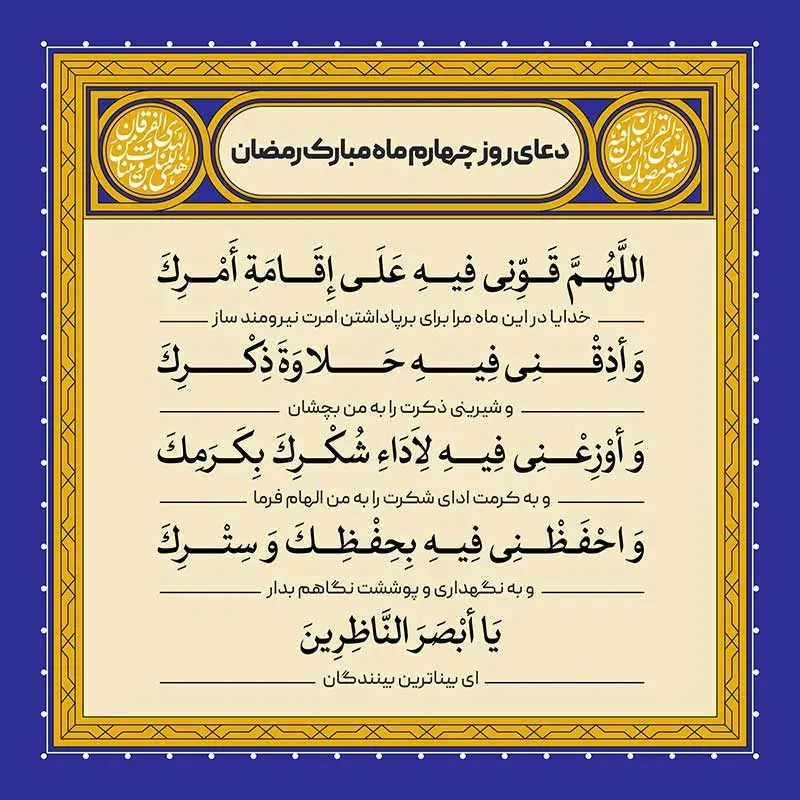 دعای روز چهارم ماه مبارک رمضان
اللَّهُمَّ قَوِّنِی فِیهِ عَلَی إِقَامَةِ أَمْرِكَ
خدایا در این ماه مرا برای برپاداشتن امرت نیرومند ساز
وَ أَذِقْنِی فِیهِ حَلاوَةَ ذِكْرِكَ
و شیرینی ذکرت را به من بچشان
وَ أَوْزِعْنِی فِیهِ لِأَدَاءِ شُكْرِكَ بِكَرَمِكَ
و به کرمت ادای شکرت را به من الهام فرما
وَ احْفَظْنِی فِیهِ بِحِفْظِكَ وَ سِتْرِكَ
و به نگهداری و پوششت نگاهم بدار
یَا أَبْصَرَ النَّاظِرِینَ
ای بیناترین بینندگان